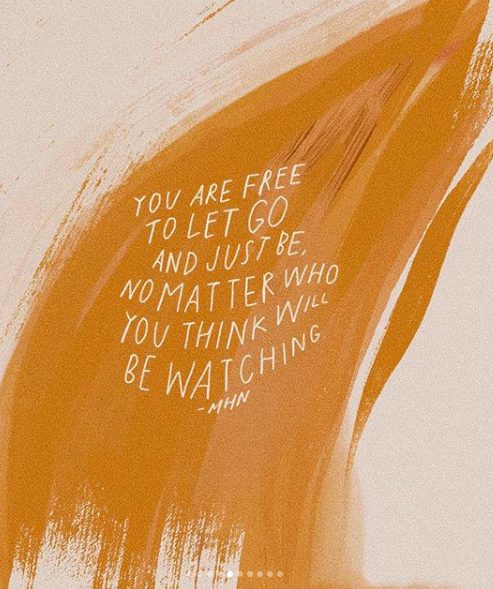 YOU ARE FREE
TO LET GO
AND JUST BE,
NO MATTER WHO
YOU THINK WILL
BE WATCHING.
-MHN